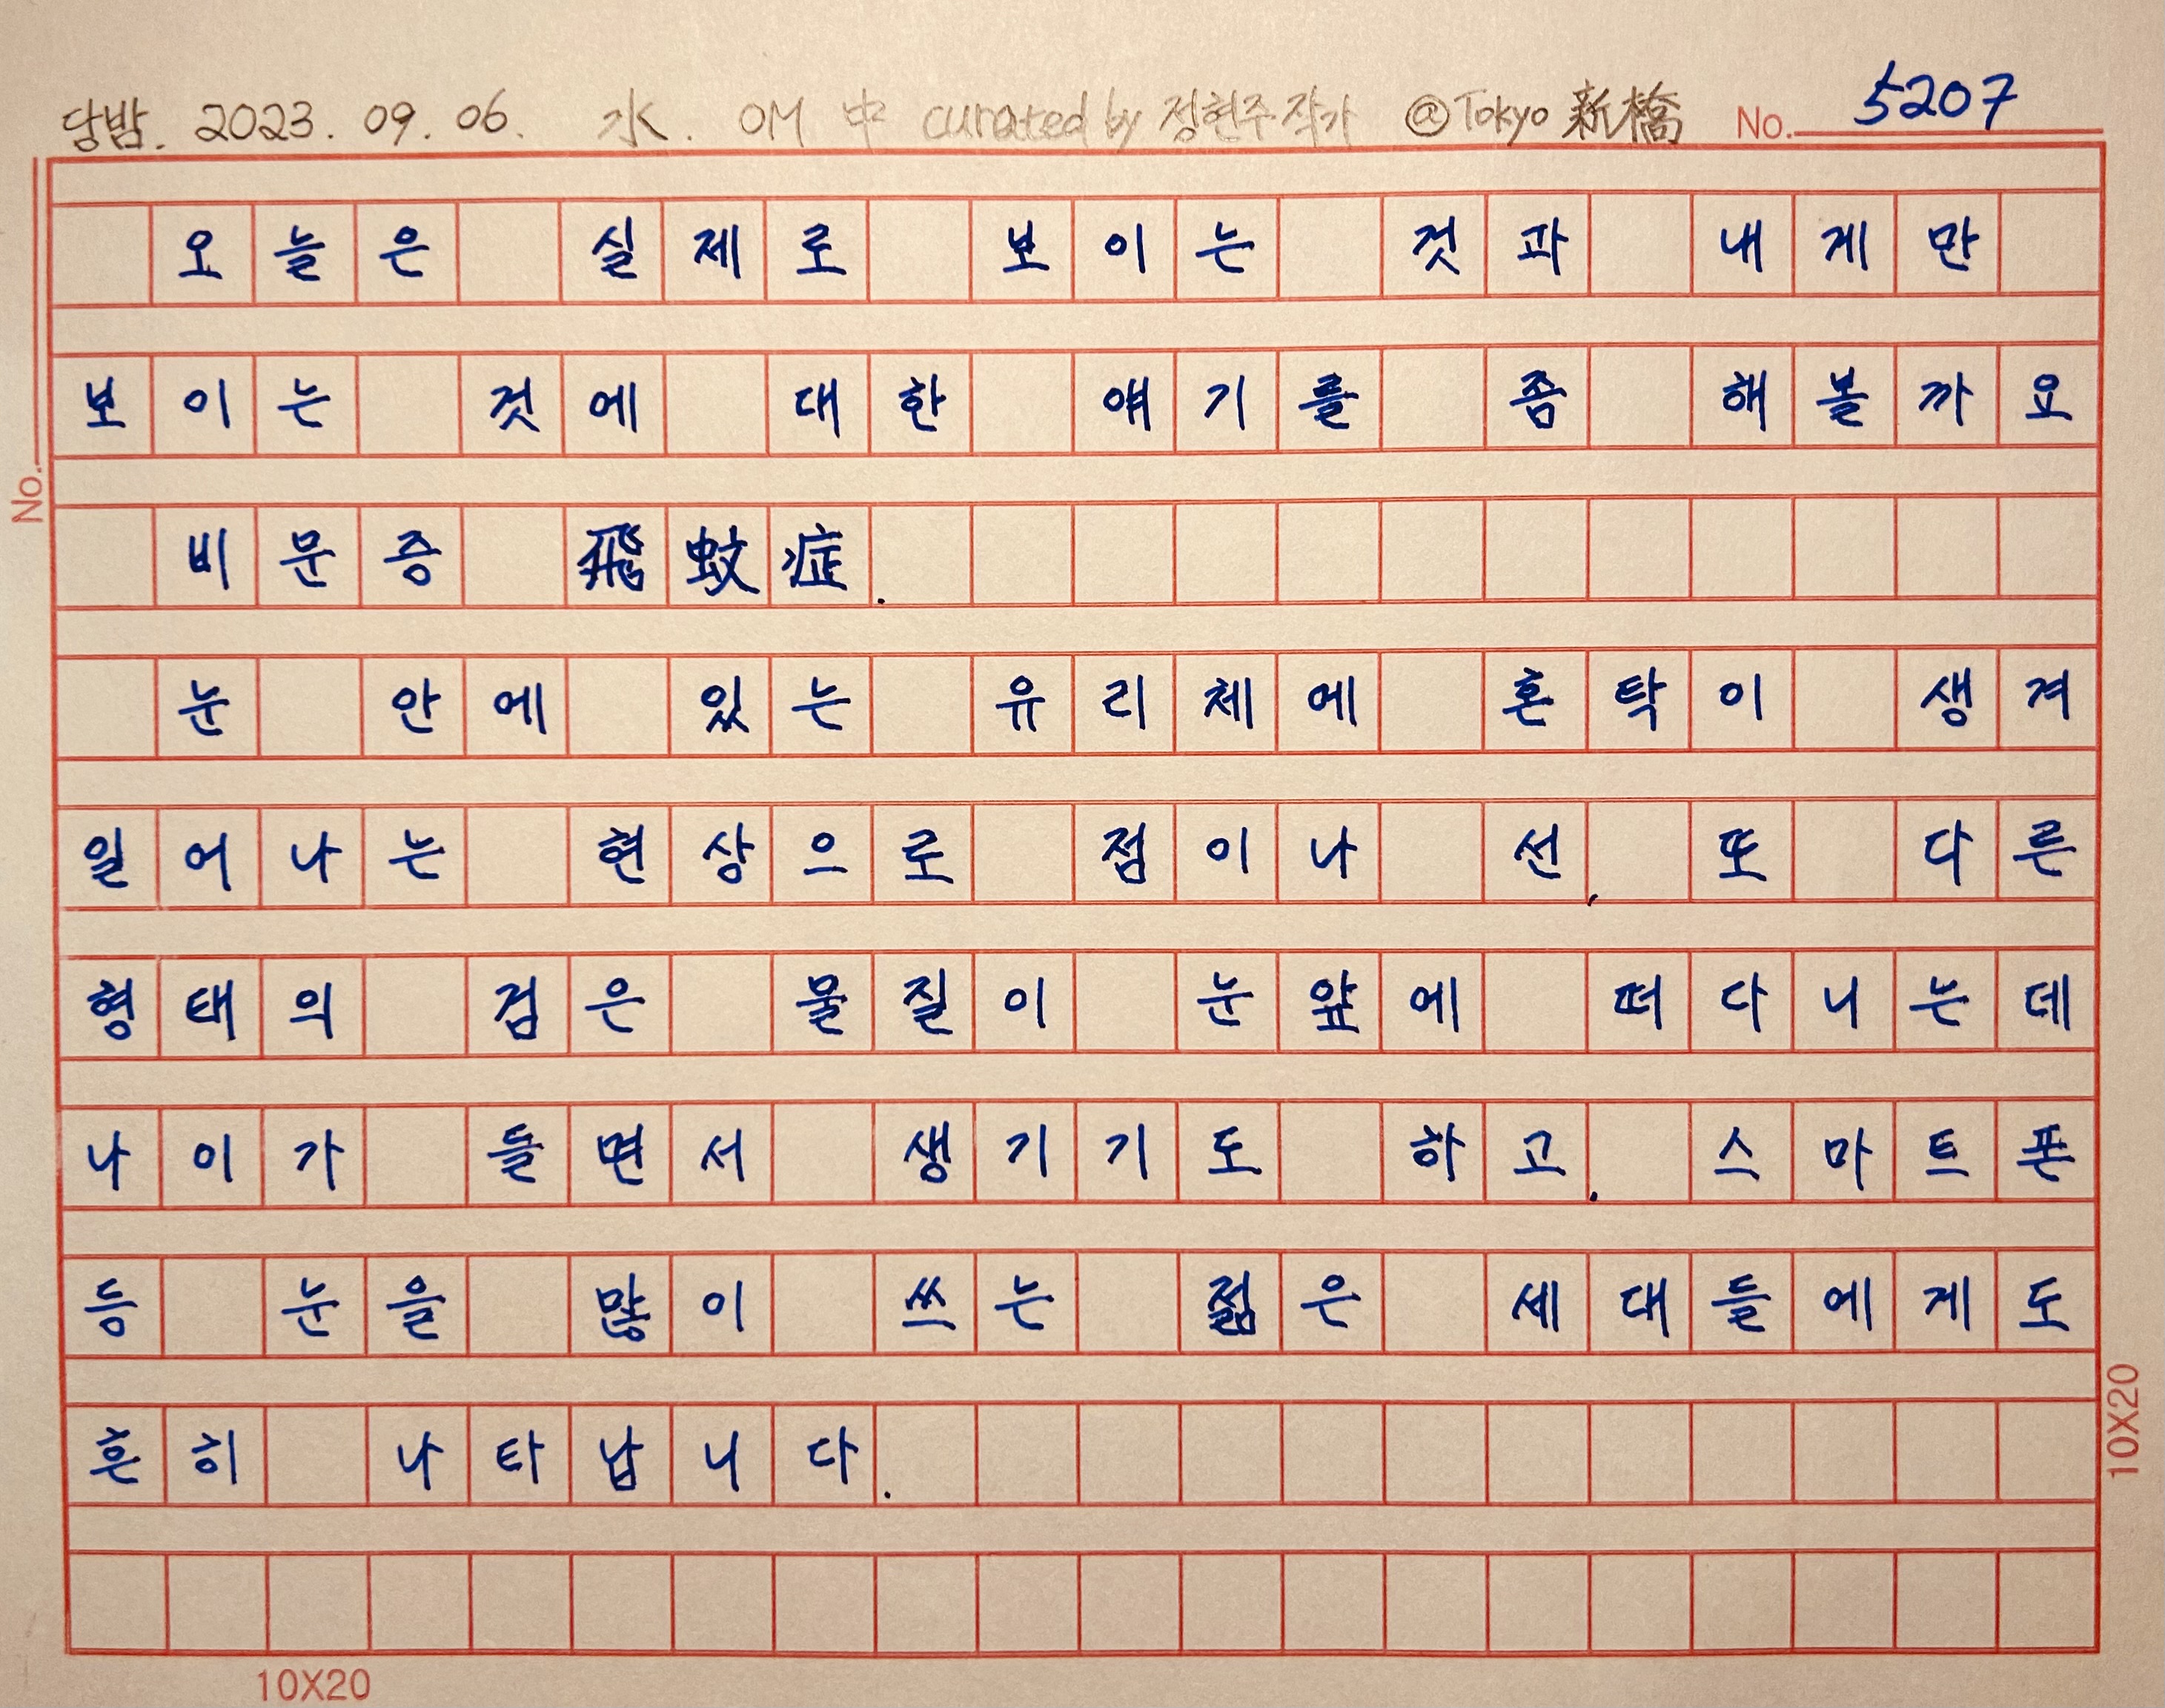 당밤. 2023. 09. 06. 水. OM 中 curated by 정현주 작가 @Tokyo 新橋 No. 5207
오늘은 실제로 보이는 것과 내게만
보이는 것에 대한 얘기를 좀 해볼까요
비문증 飛蚊症.
눈 안에 있는 유리체에 혼탁이 생겨
일어나는 현상으로 점이나 선, 또 다른
형태의 검은 물질이 눈앞에 떠다니는데
나이가 들면서 생기기도 하고. 스마트폰
등 눈을 많이 쓰는 젊은 세대들에게도
흔히 나타납니다.
No.
10X20
10X20